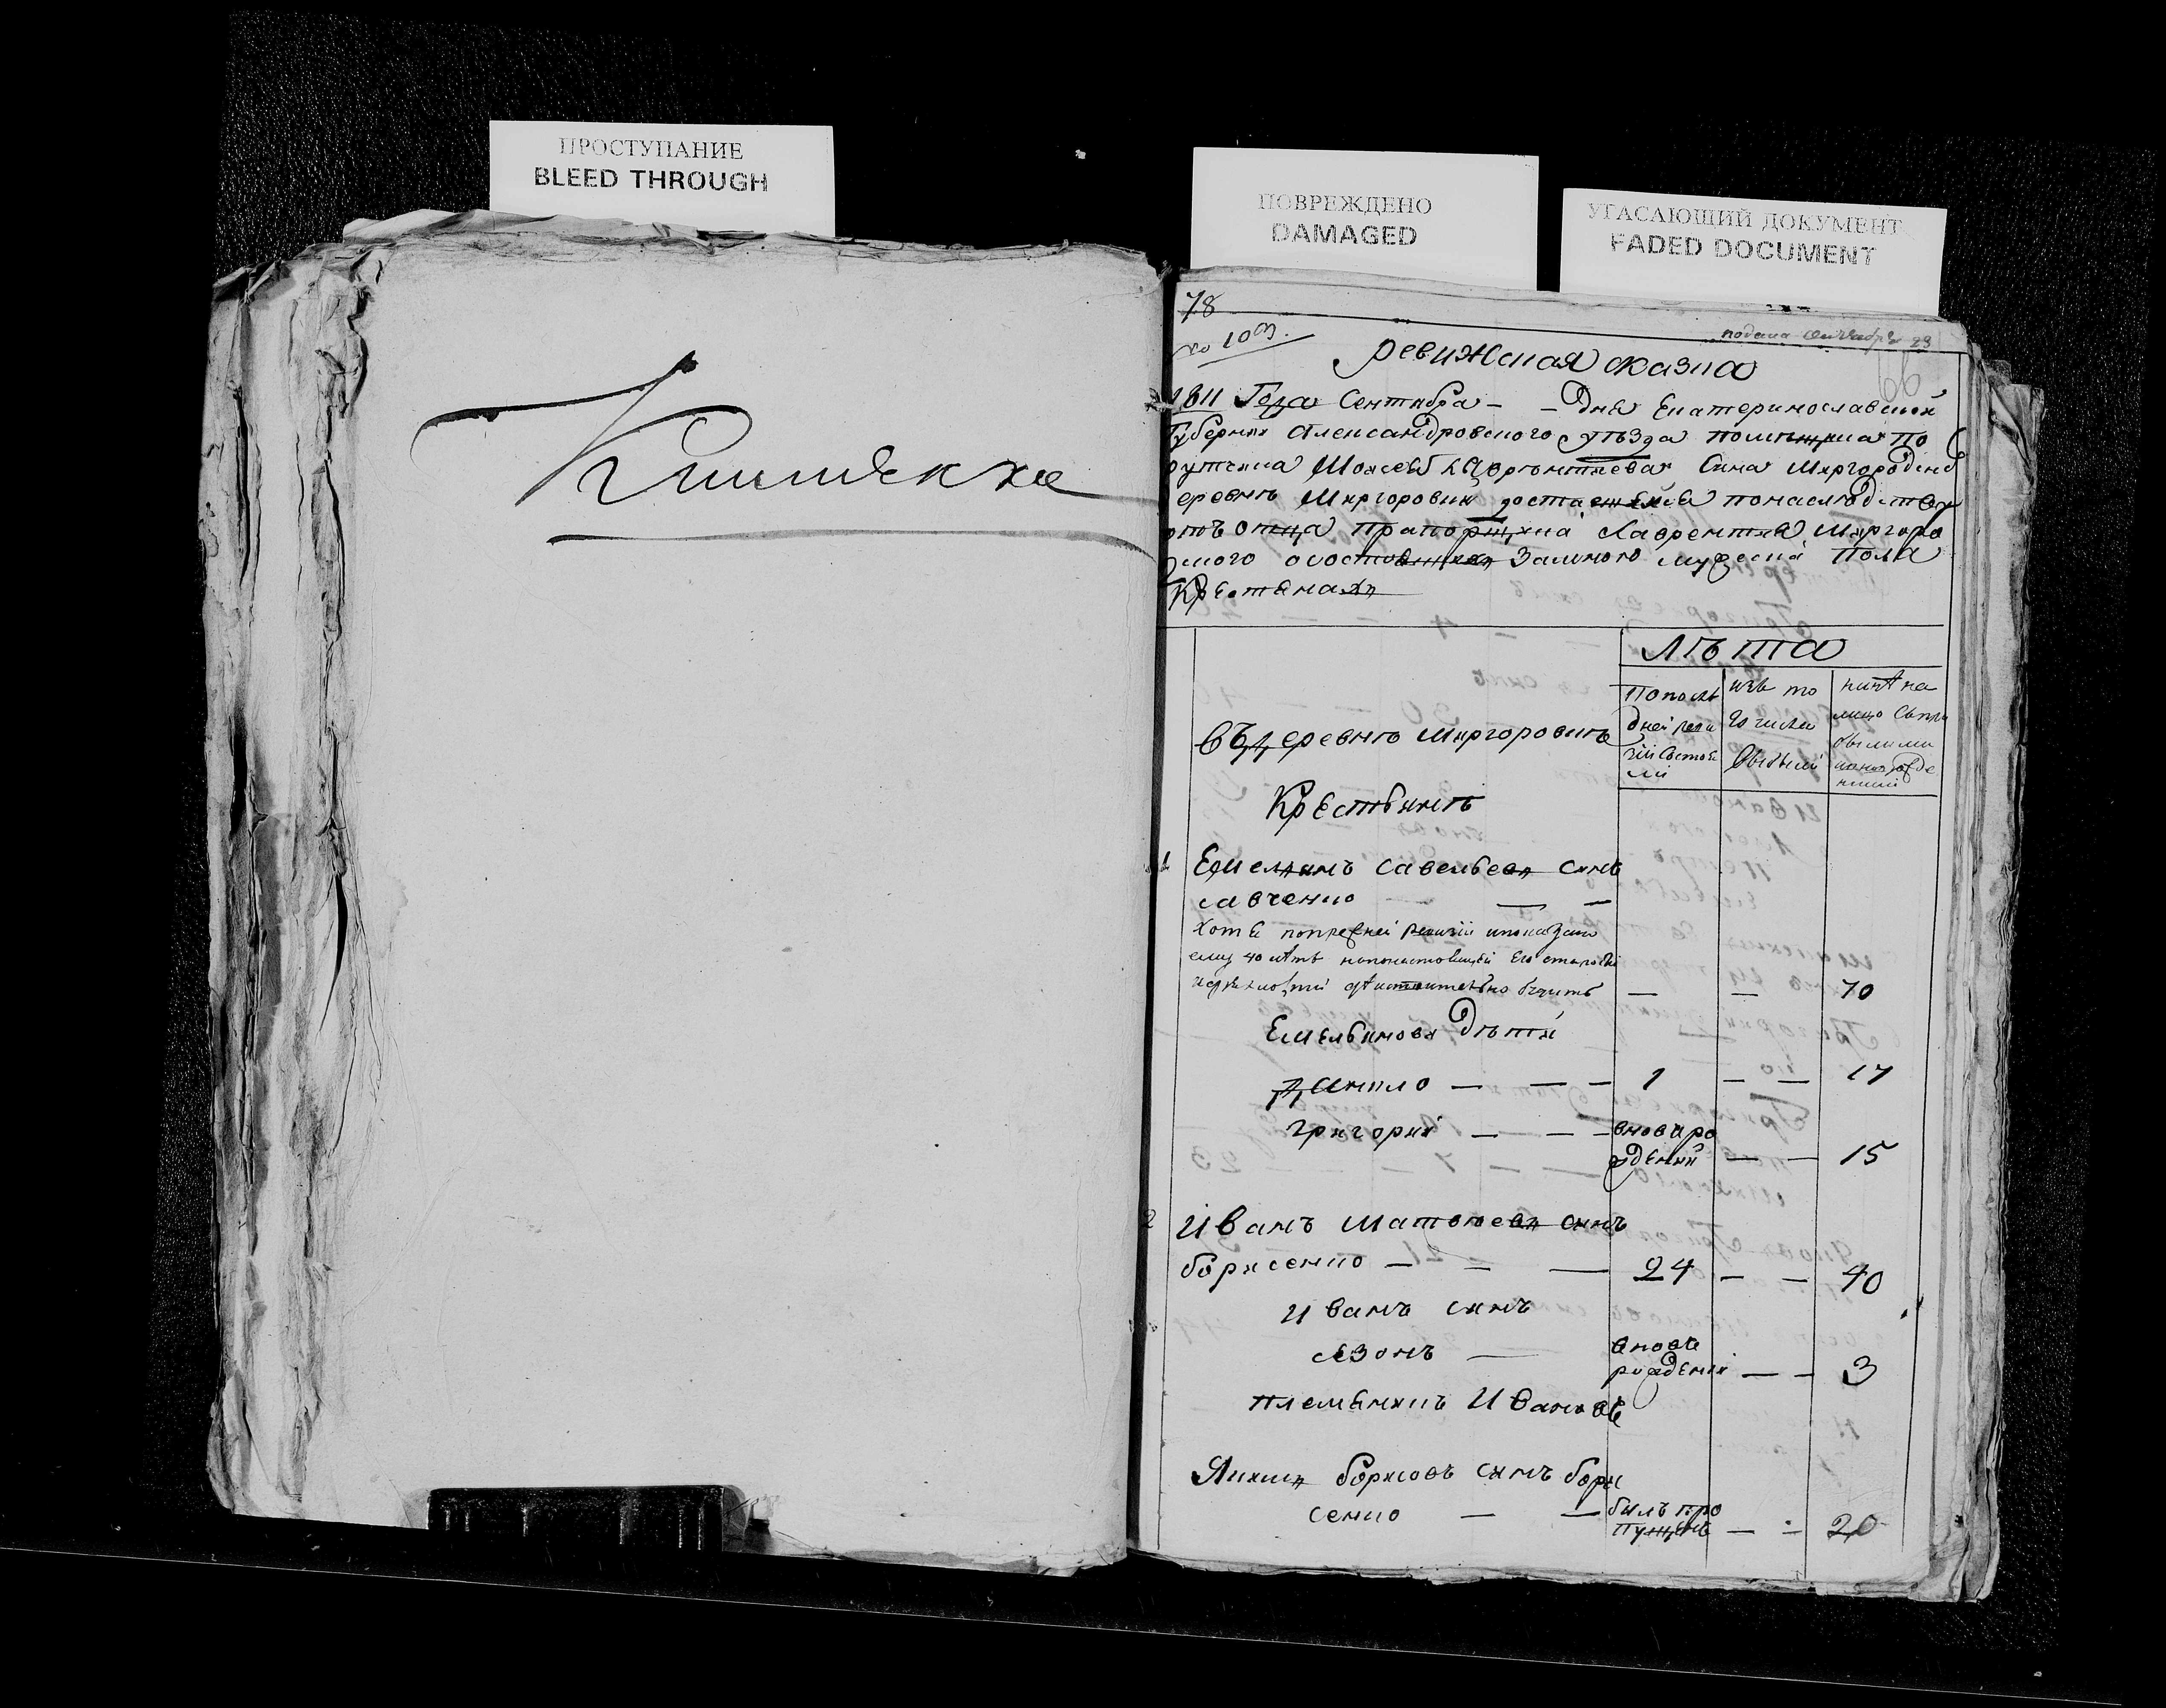 ПРОСТУПАНИЕ
BLEED THROUGH
ПОВРЕЖДЕНО
DAMAGED
УГАСАЮЩИЙ ДОКУМЕНТ
FADED DOCUMENT
78
подана сентабря 23
66
ревижская сказка
1811 Года Сентября - - Дня Екатеринославской
Губернии Александровского уезда помещика по
ручика Моисея Лаврентиева Сина Миргородског
деревне Миргоровки доставшейся понаследству
отъ отца прапорщика Лаврентия Миргоро
дского осостоящихъ Замною мужеска пола
Крестянахъ
лѣта
въ деревнѣ миргоровкѣ
Попосле
дней реви
зіи состоя
ли
изъ то
го числа
выбыли
нинѣ на
лицо Съпри
былыми
Крестьянѣ
1
Емелянъ савельевъ синъ
савченко — —
хотя попрежней ревизіи ипоказано
ему 40 лѣтъ
— — 70
Емельянови Дѣти
Данило — — — 1 — — 17
григорий — — — вновъ ро
ждений — — 15
2
Иванъ матвѣевъ синъ
борисенко — — — 24 — — 40
Иванъ синъ
сазонъ — вновъ
рожденій — — 3
племянникъ Ивановъ
Яким борисовъ синъ бори
сенко — — билъ про
пущенъ — — 20